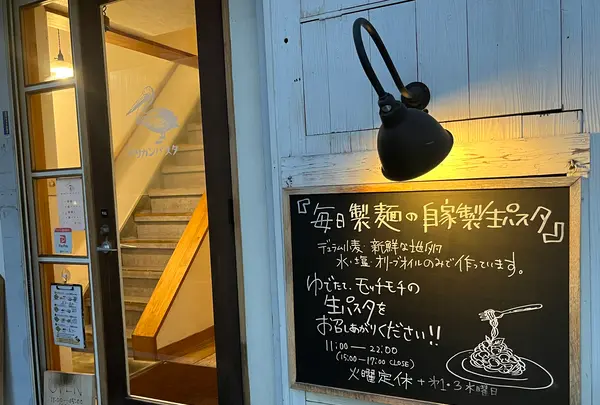 『毎日製麺の自家製生パスタ』
デュラム小麦・新鮮な地卵
水・塩・オリーブオイルのみで作っています。
ゆでたて、モッチモチの
生パスタを
お召しあがりください!!
11:00―22:00
(15:00-17:00 CLOSE)
火曜定休+第1・3木曜日
ペリカンパスタ
OPEN